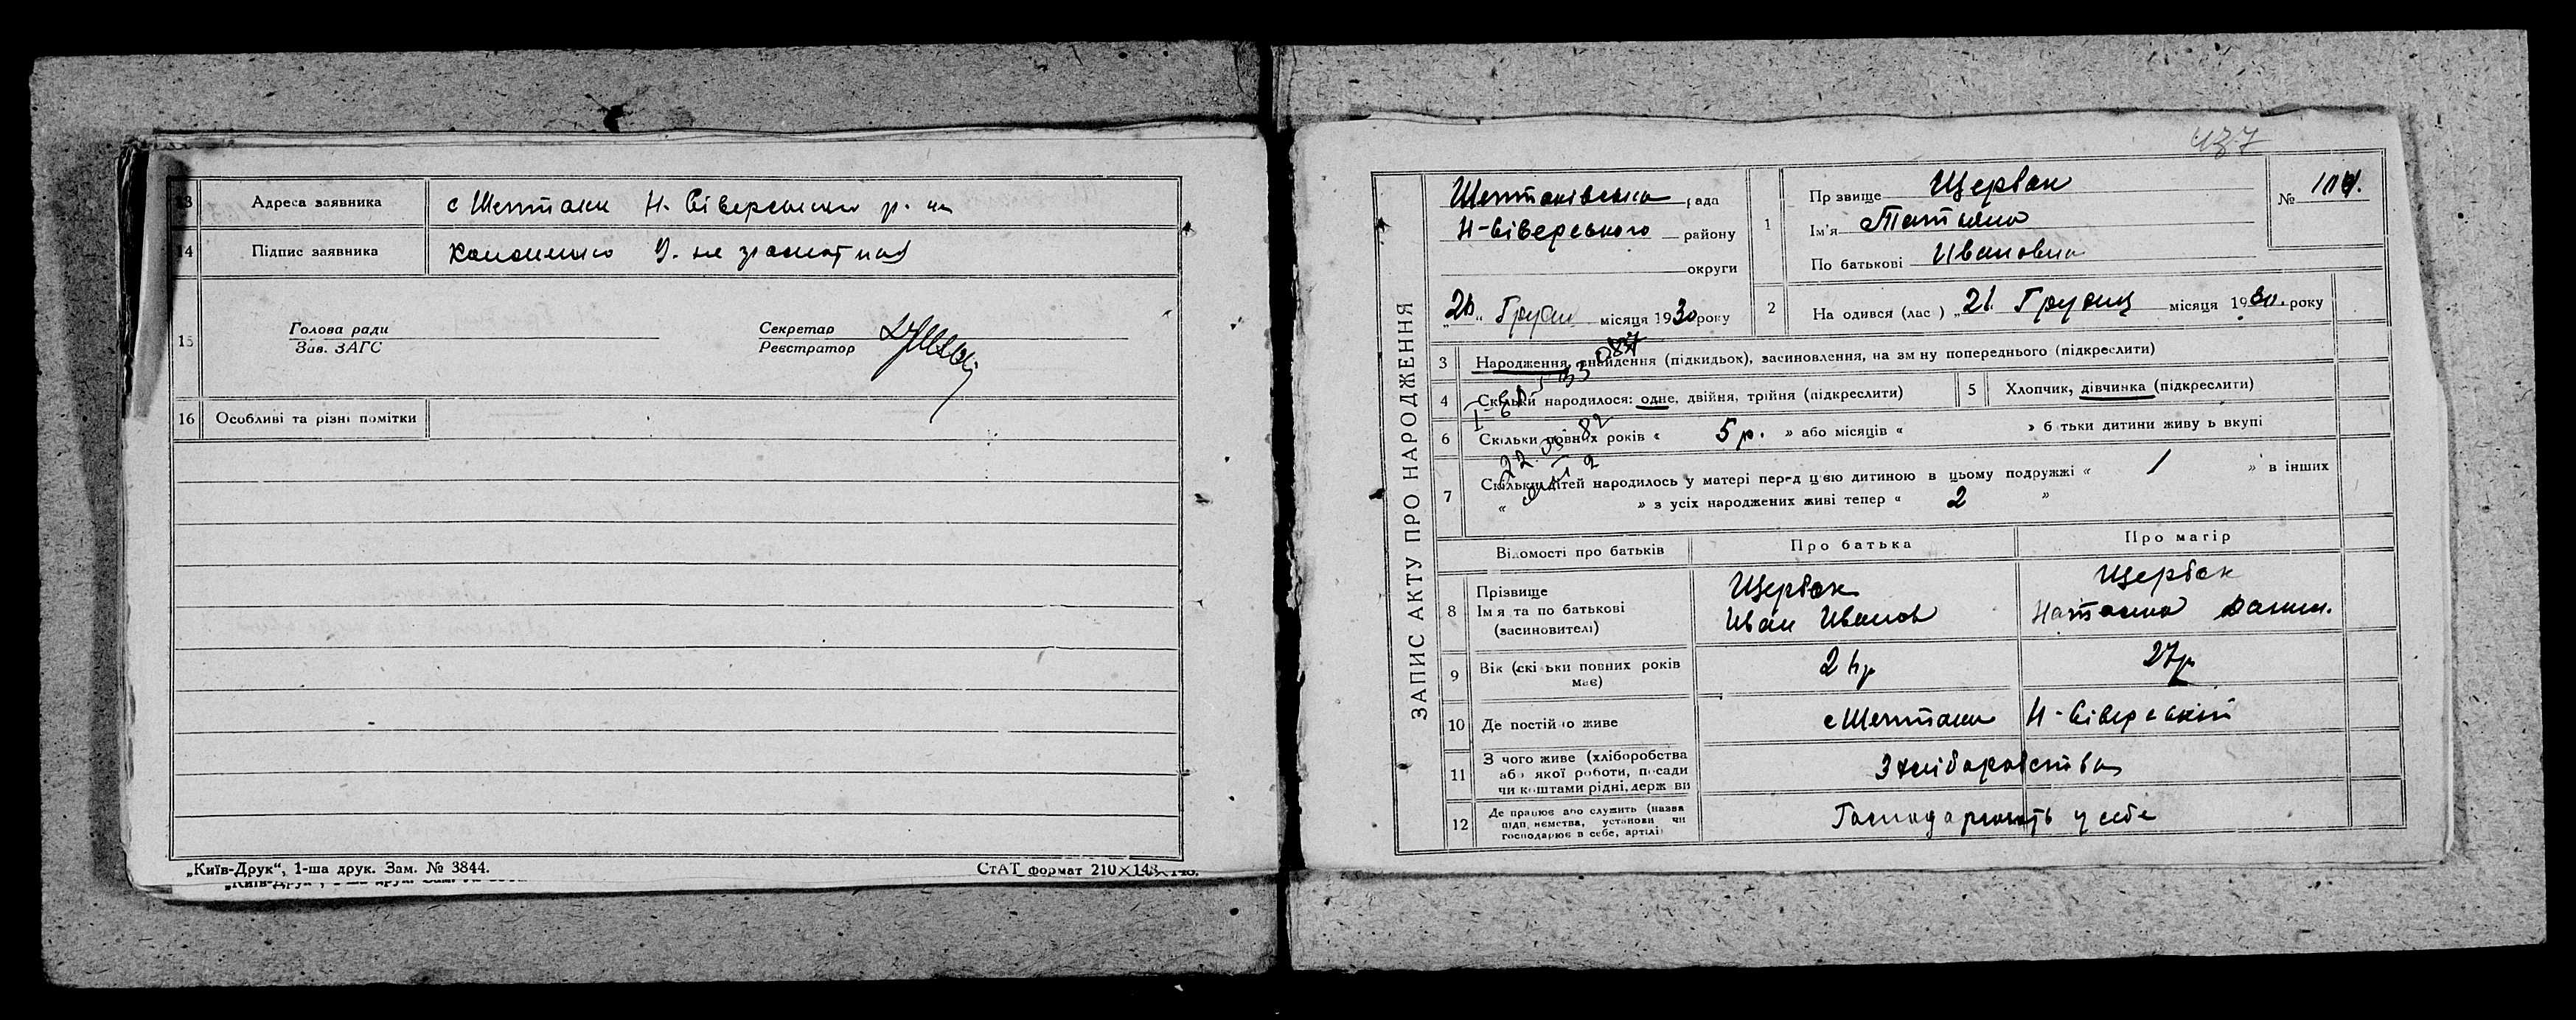 13 Адреса заявника с Шептаки Н. Сіверський р.
14 Підпис заявника не грамотная
15 Голова ради
Зав. ЗАГС
Секретар
Реєстратор
16 Особливі та різні помітки
„Київ-Друк“, 1-ша друк. Зам. № 3844.
СтАТ формат 210×148
437
ЗАПИС АКТУ ПРО НАРОДЖЕННЯ
Шептаківська рада
Н-Сіверського району
округи
місяця 1930 року
1 Пр звище Щербак
Ім'я Татьяна
По батькові Ивановна
№
2 На одився (лас ) „21 Грудня місяця 1930. року
3 Народження, знайдення (підкидьок), засиновлення, на зм ну попереднього (підкреслити)
4 Скільки народилося: одне, двійня, трійня (підкреслити)
5 Хлопчик, дівчинка (підкреслити)
6 Скільки повних років « 5 р. » або місяців « » б тьки дитини живу ь вкупі
7 Скільки дітей народилось у матері перед цією дитиною в цьому подружжі « 1 » в інших
« » з усіх народжених живі тепер « 2 »
Відомості про батьків Про батька Про матір
8 Прізвище Щербак Щербак
Ім я та по батькові Иван Иванов
(засиновителі)
9 Вік (скі ьки повних років має) 27р
10 Де постій о живе с Шептаки Н-Сіверський
11 З чого живе (хліборобства
або якої роботи, посади
чи коштами рідні, держ ви
З хліборобства
12 Де працює або служить (назва
підп ємства, установи чи
господарює в себе, артілі
Господарюють у себе